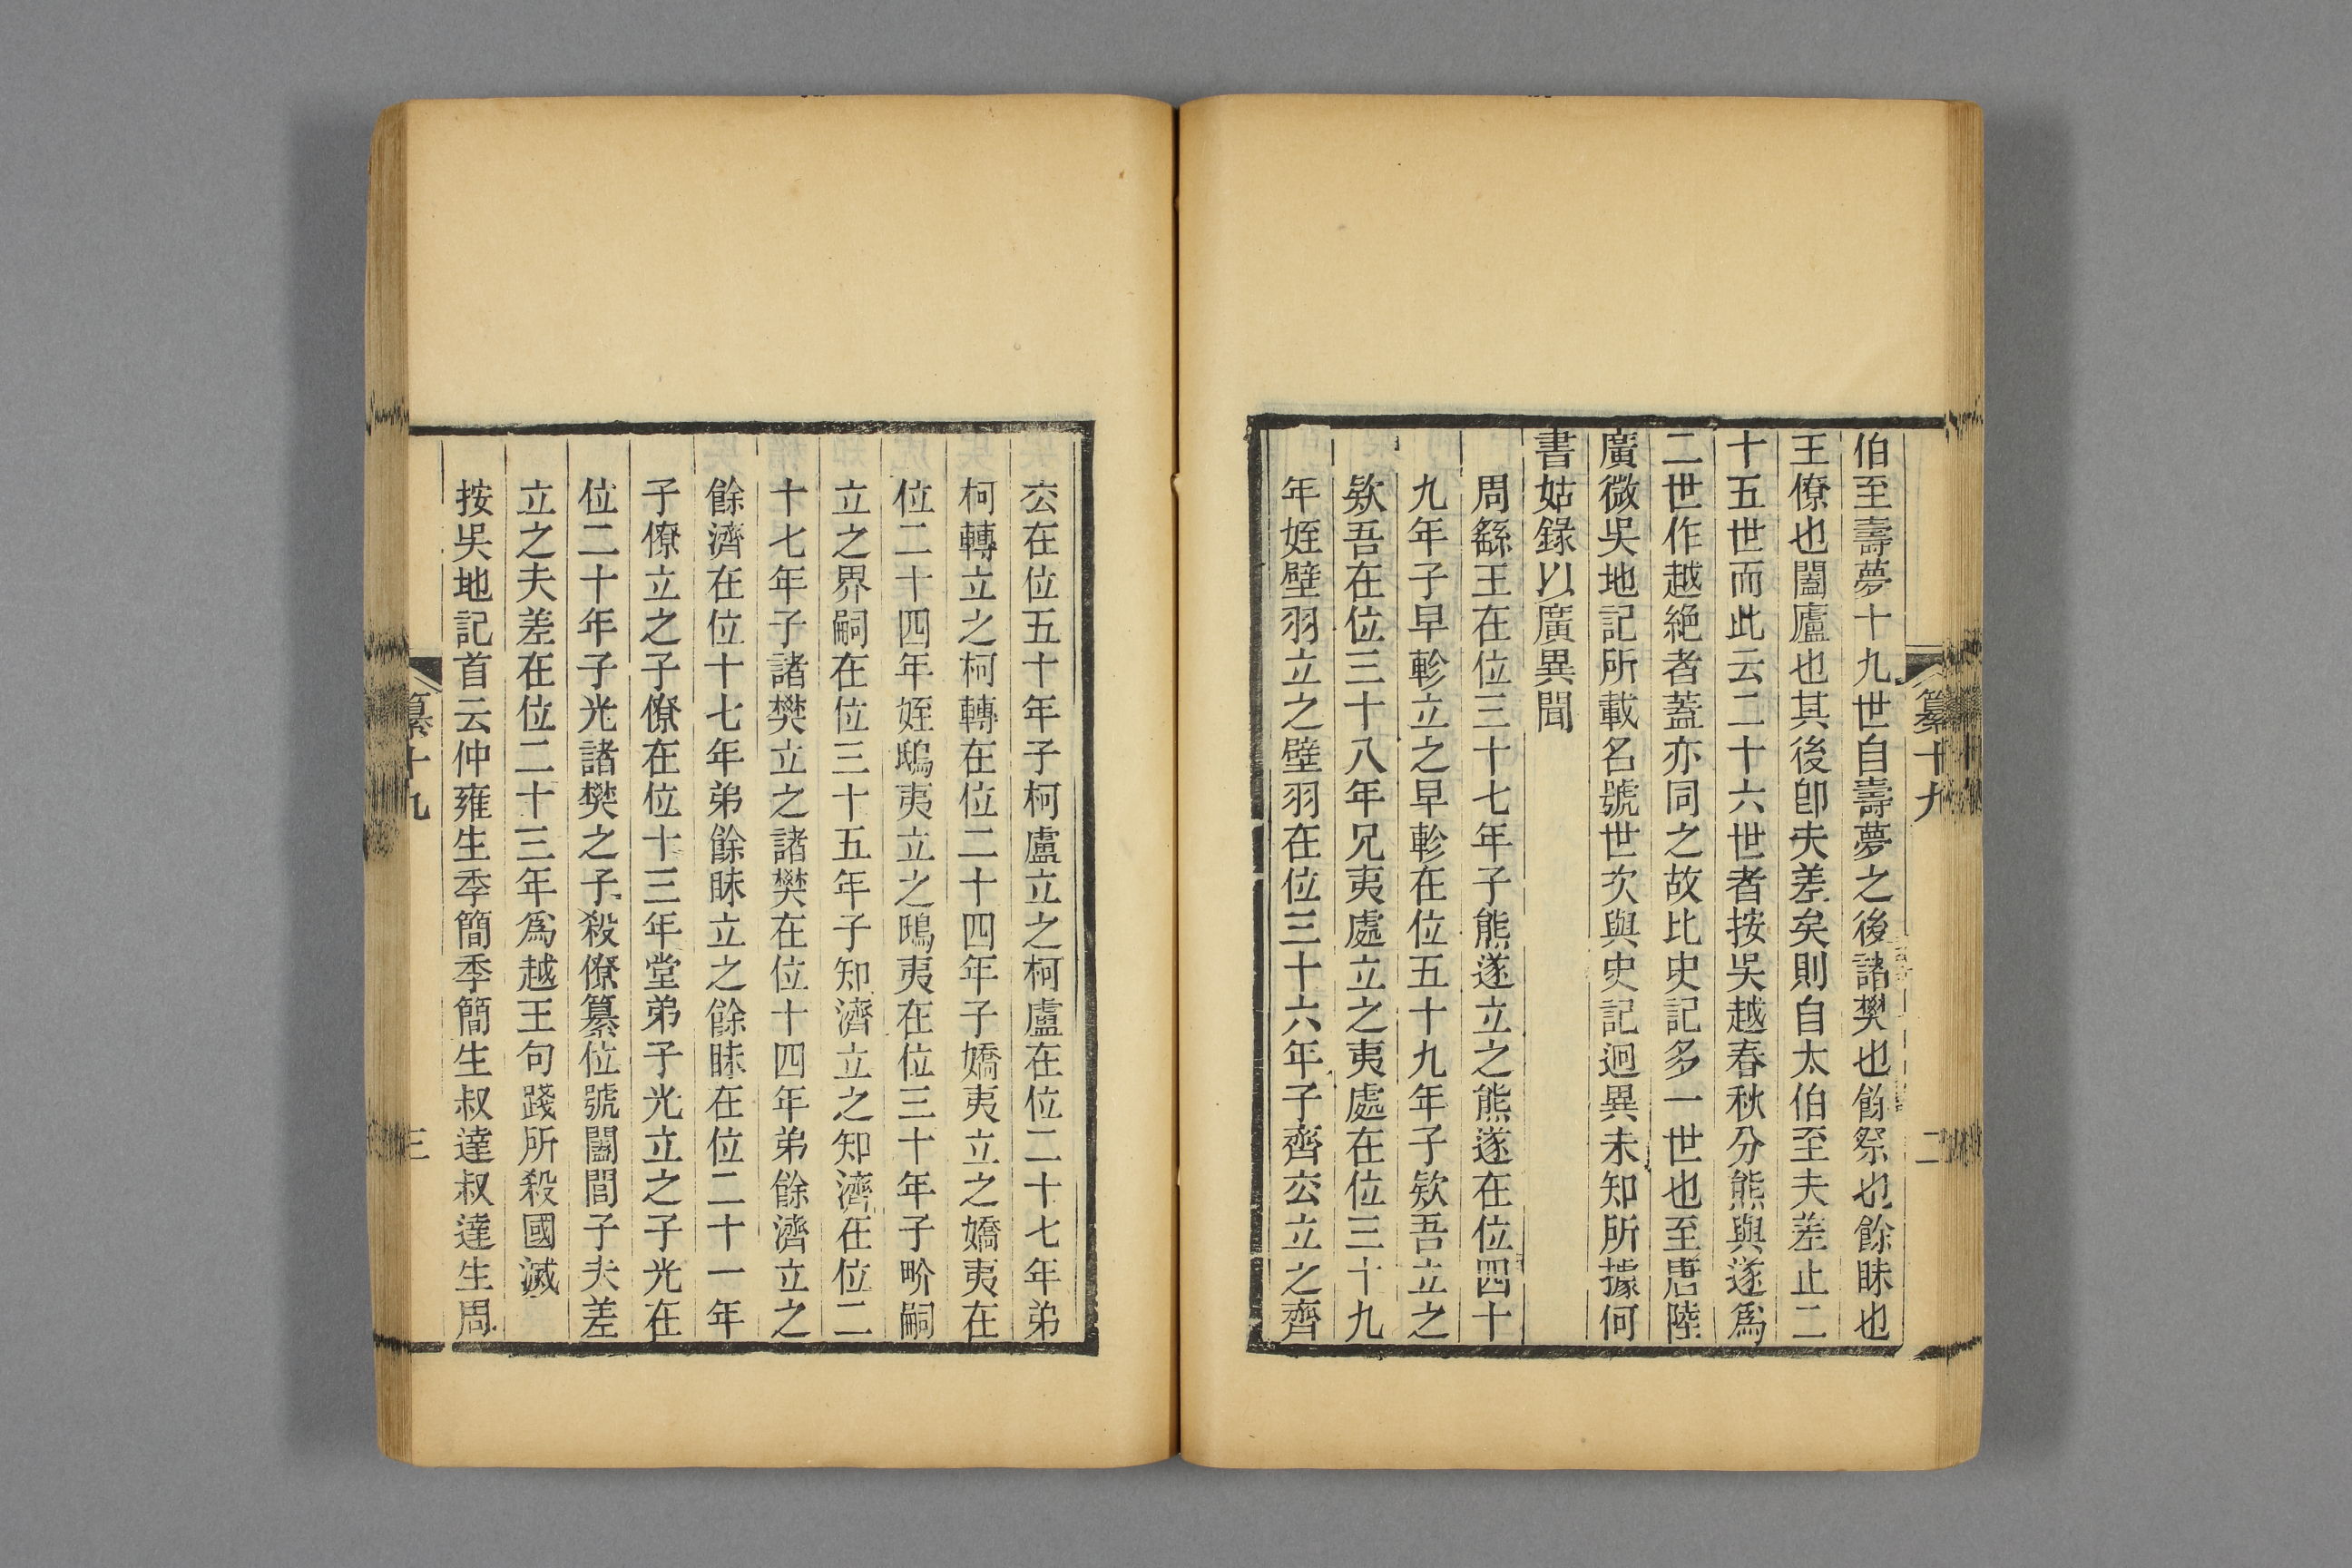 伯至壽夢十九世自壽夢之後諸樊也餘祭也餘昧也
王僚也闔廬也其後卽夫差矣則自太伯至夫差止二
十五世而此云二十六世者按吳越春秋分熊與遂爲
二世作越絶者蓋亦同之故比史記多一世也至唐陸
廣微吳地記所載名號世次與史記迥異未知所據何
書姑錄以廣異聞
周繇王在位三十七年子熊遂立之熊遂在位四十
九年子早軫立之早軫在位五十九年子欵吾立之
欵吾在位三十八年兄夷處立之夷處在位三十九
年姪壁羽立之壁羽在位三十六年子齊玄立之齊
纂十九
二
玄在位五十年子柯盧立之柯盧在位二十七年弟
柯轉立之柯轉在位二十四年子嬌夷立之嬌夷在
位二十四年姪鴟夷立之鴟夷在位三十年子界嗣
立之界嗣在位三十五年子知濟立之知濟在位二
十七年子諸樊立之諸樊在位十四年弟餘濟立之
餘濟在位十七年弟餘昧立之餘昧在位二十一年
子僚立之子僚在位十三年堂弟子光立之子光在
位二十年子光諸樊之子殺僚篡位號闔閭子夫差
立之夫差在位二十三年爲越王句踐所殺國滅
按吳地記首云仲雍生季簡季簡生叔達叔達生周
纂十九
三